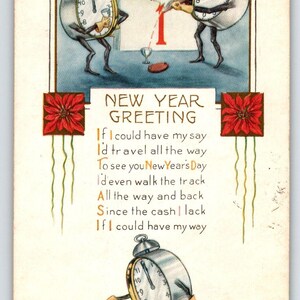 1
NEW YEAR
GREETING
If I could have my say
I'd travel all the way
To see you New Year's Day
I'd even walk the track
All the way and back
Since the cash I lack
If I could have my way